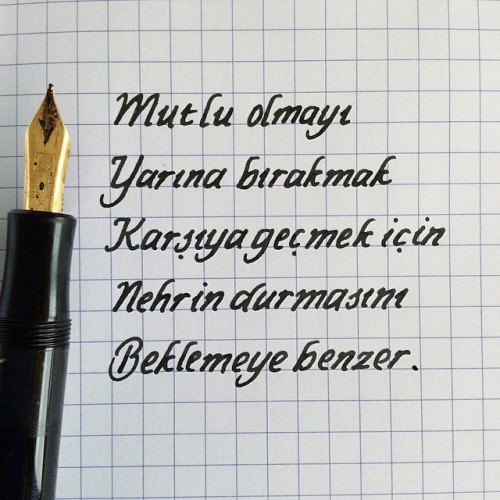 Mutlu olmayı
Yarına bırakmak
Karşıya geçmek için
Nehrin durmasını
Beklemeye benzer.